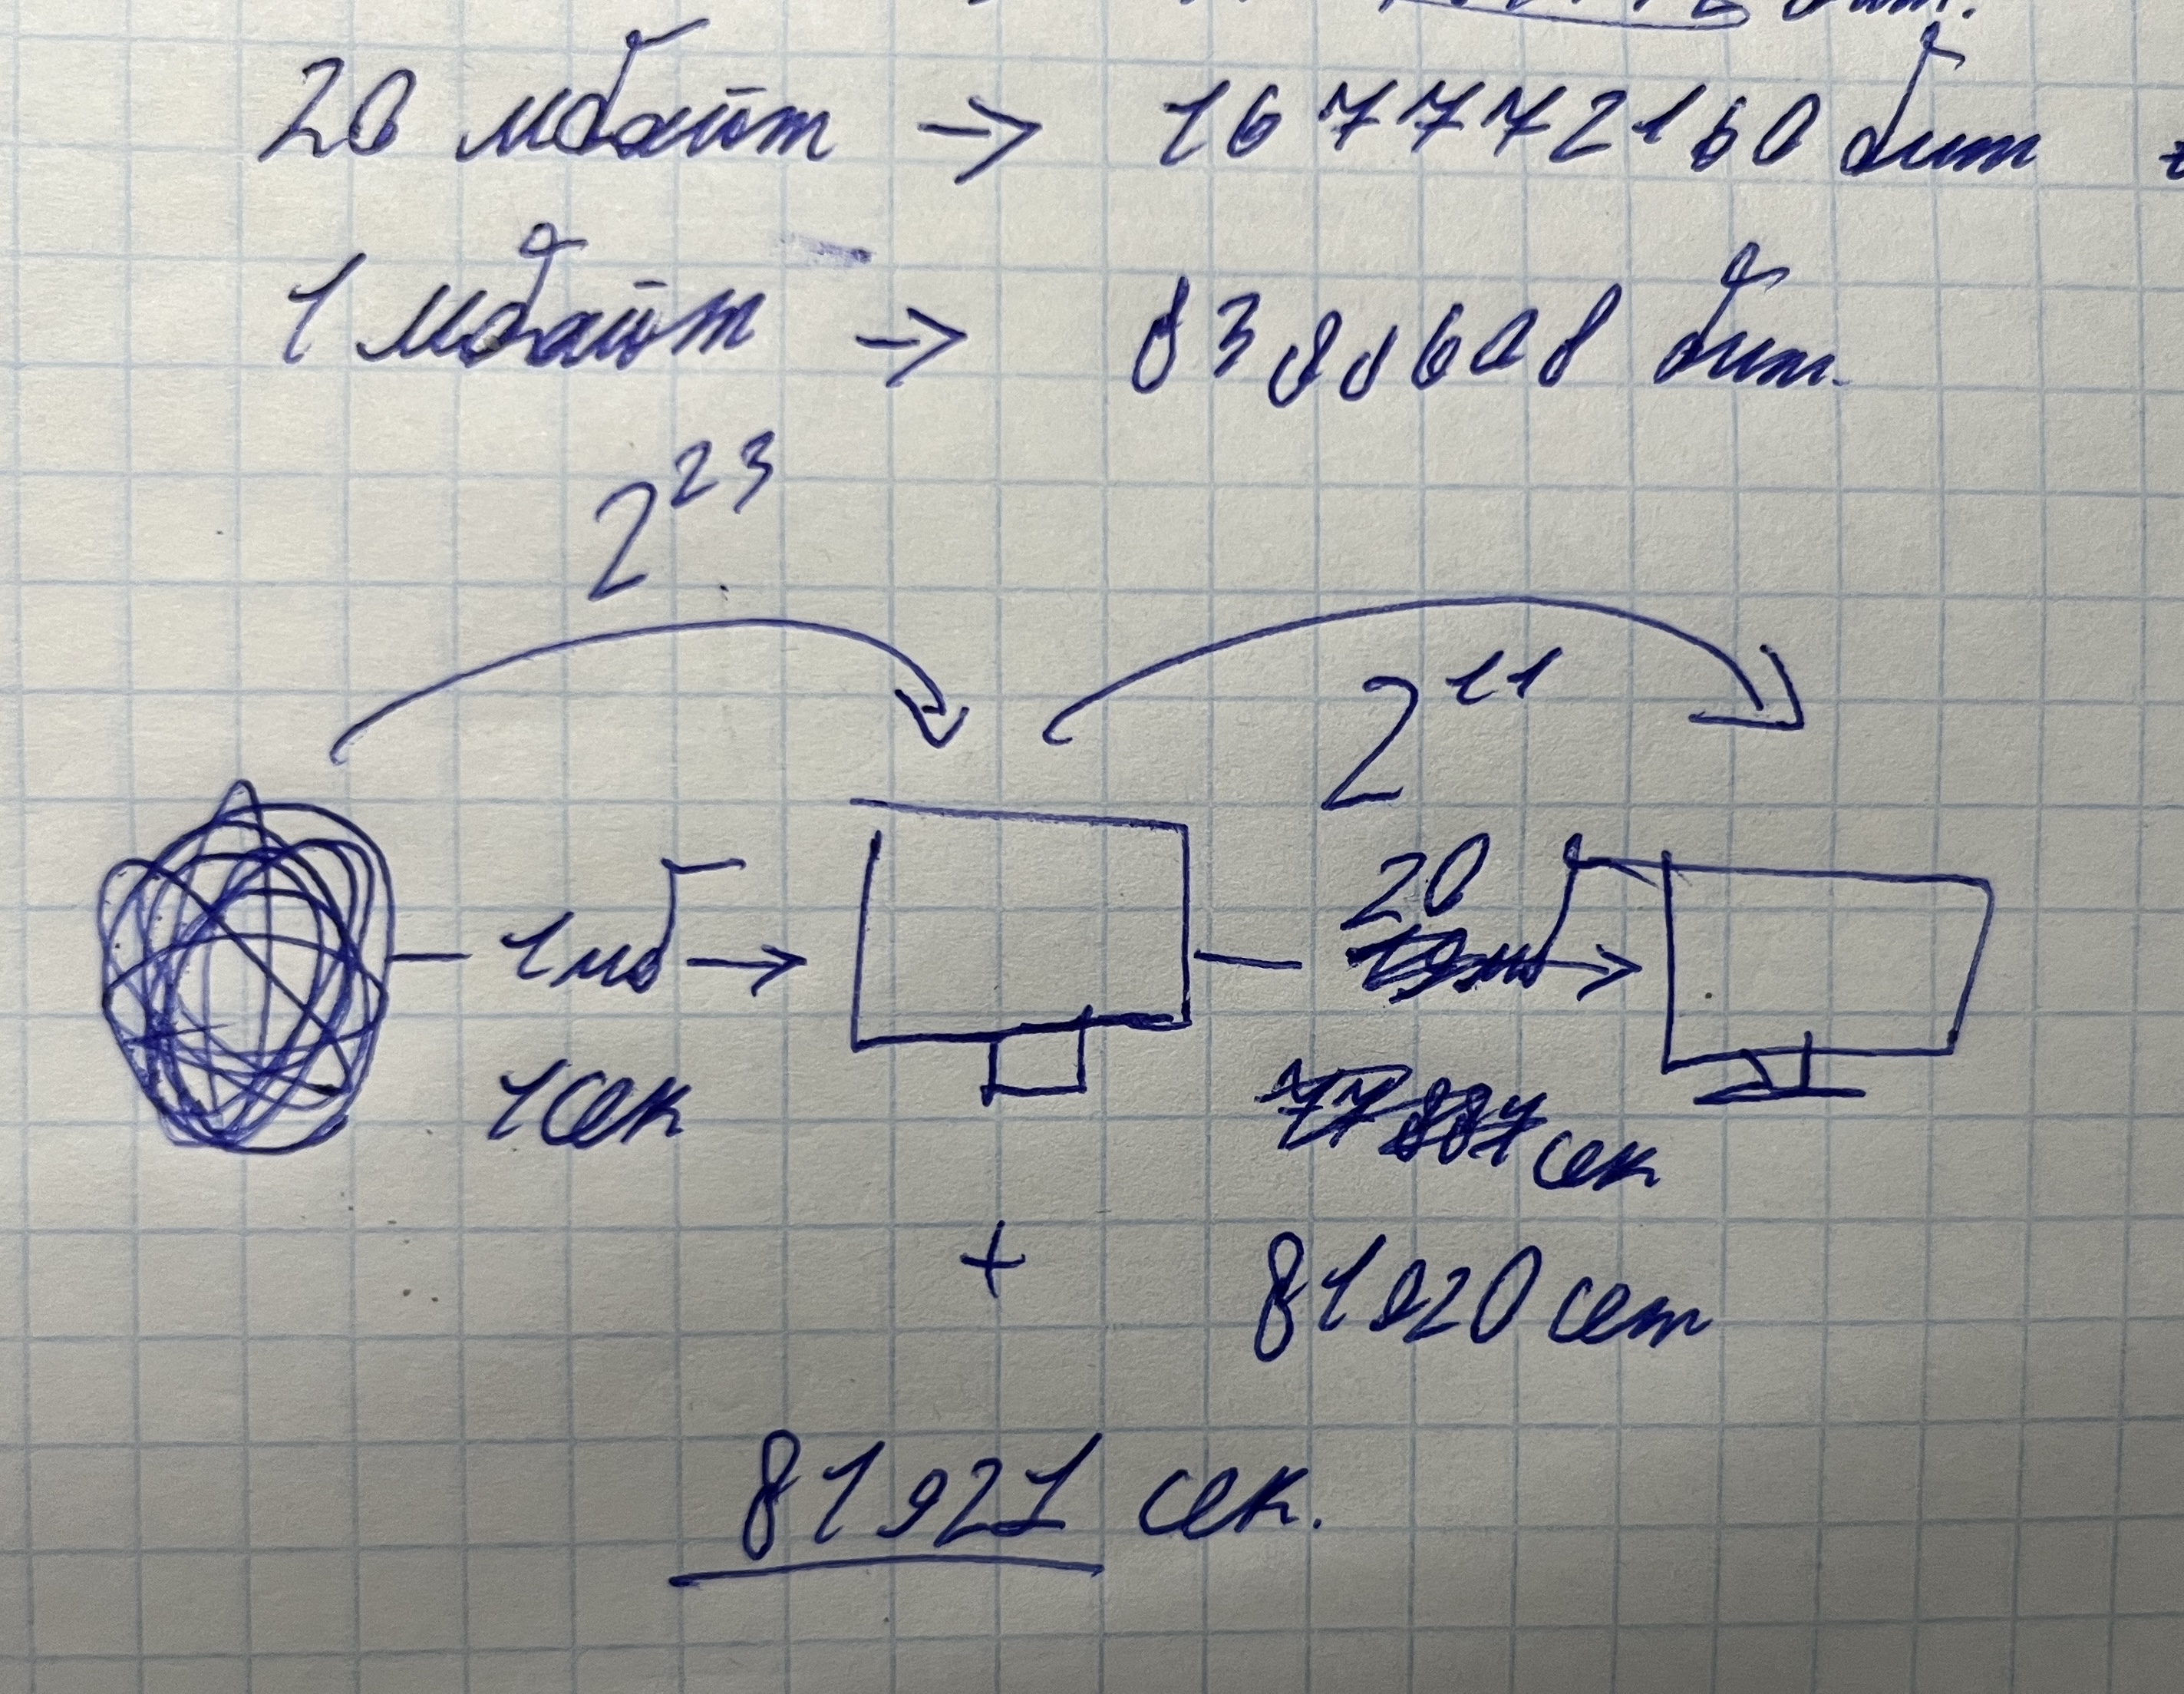 бит.
20 мбайт → 167772160 бит
1 мбайт → 8388608 бит.
2²³
2¹¹
1мб →
20
→
1сек
сек
+
81920 сет
81921 сек.